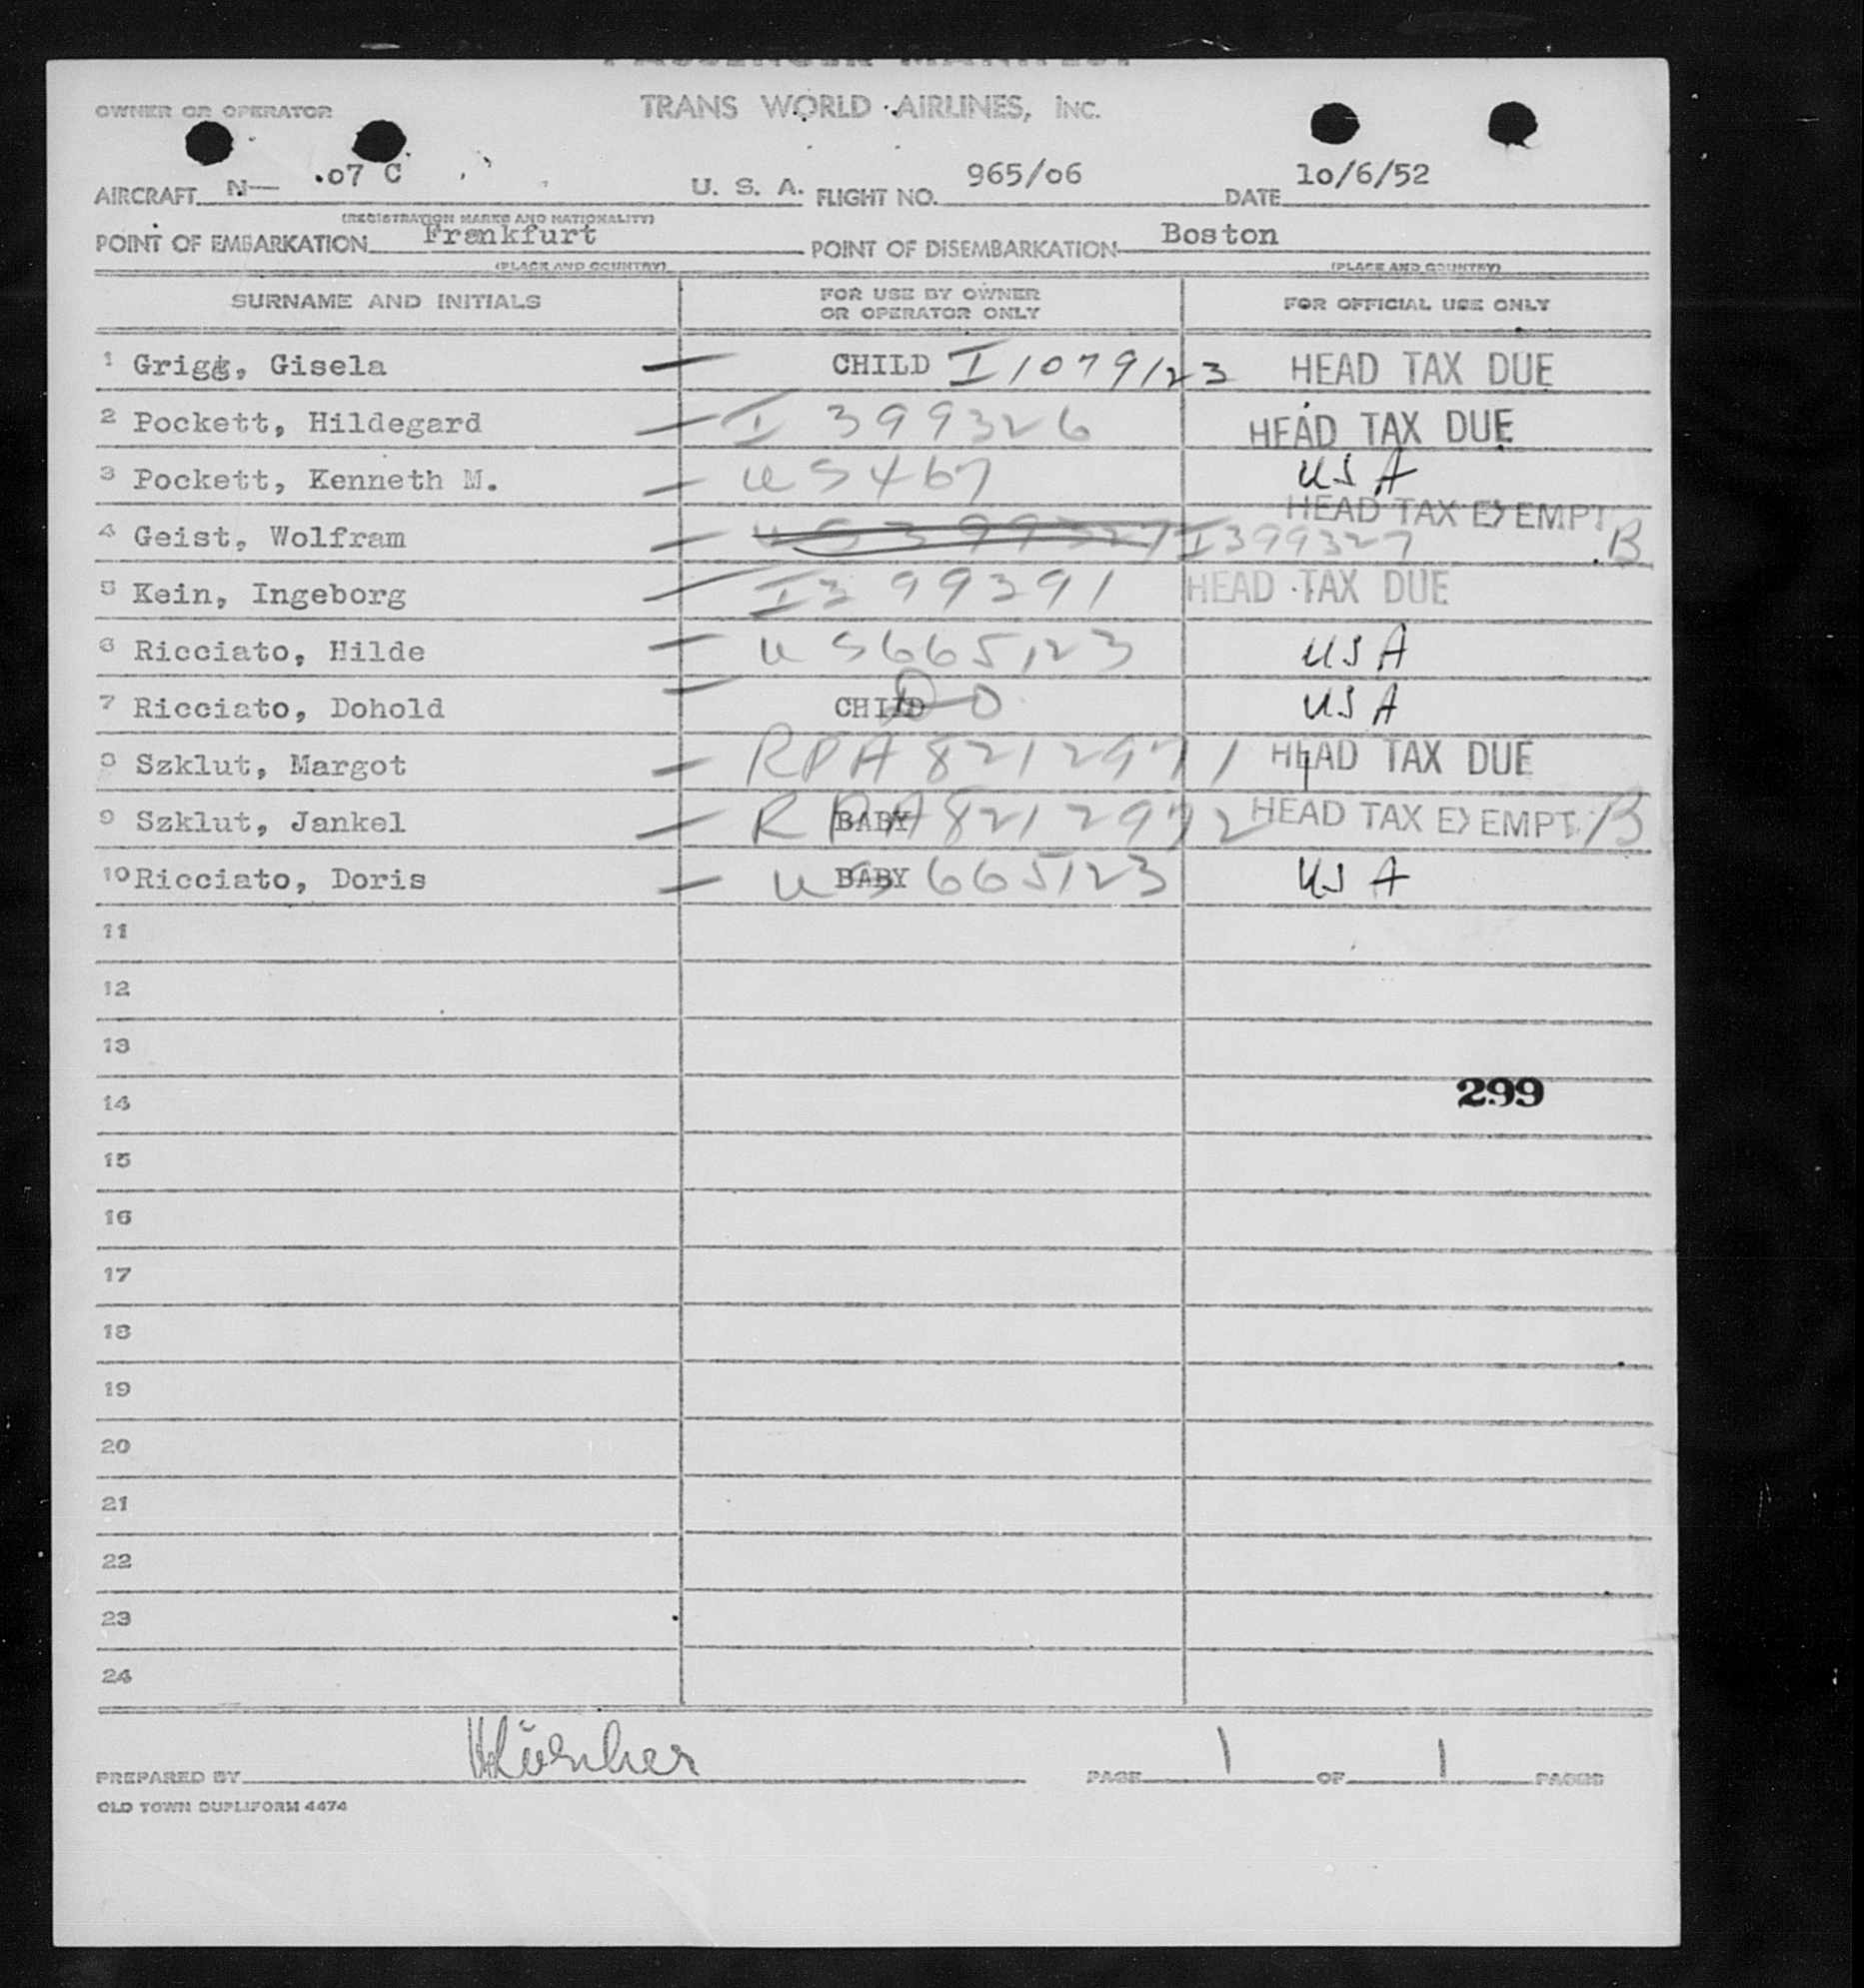 PASSENGER MANIFEST
OWNER OR OPERATOR TRANS WORLD AIRLINES, INC.
AIRCRAFT N— .07 C U. S. A. FLIGHT NO. 965/06 DATE 10/6/52
(REGISTRATION MARKS AND NATIONALITY)
POINT OF EMBARKATION Frankfurt POINT OF DISEMBARKATION Boston
(PLACE AND COUNTRY) (PLACE AND COUNTRY)
SURNAME AND INITIALS FOR USE BY OWNER OR OPERATOR ONLY FOR OFFICIAL USE ONLY
1 Grigg, Gisela — CHILD I 1079123 HEAD TAX DUE
2 Pockett, Hildegard — I 399326 HEAD TAX DUE
3 Pockett, Kenneth M. — US467 USA
HEAD TAX EXEMPT B
4 Geist, Wolfram — US399327 I399327
5 Kein, Ingeborg — I399391 HEAD TAX DUE
6 Ricciato, Hilde — US665123 USA
7 Ricciato, Dohold — CHILD DO USA
8 Szklut, Margot — RPA 8212971 HEAD TAX DUE
9 Szklut, Jankel — BABY RPA 8212972 HEAD TAX EXEMPT B
10 Ricciato, Doris — BABY US 665123 USA
11
12
13
14 299
15
16
17
18
19
20
21
22
23
24
PREPARED BY PAGE 1 OF 1 PAGES
OLD TOWN DUPLIFORM 4474